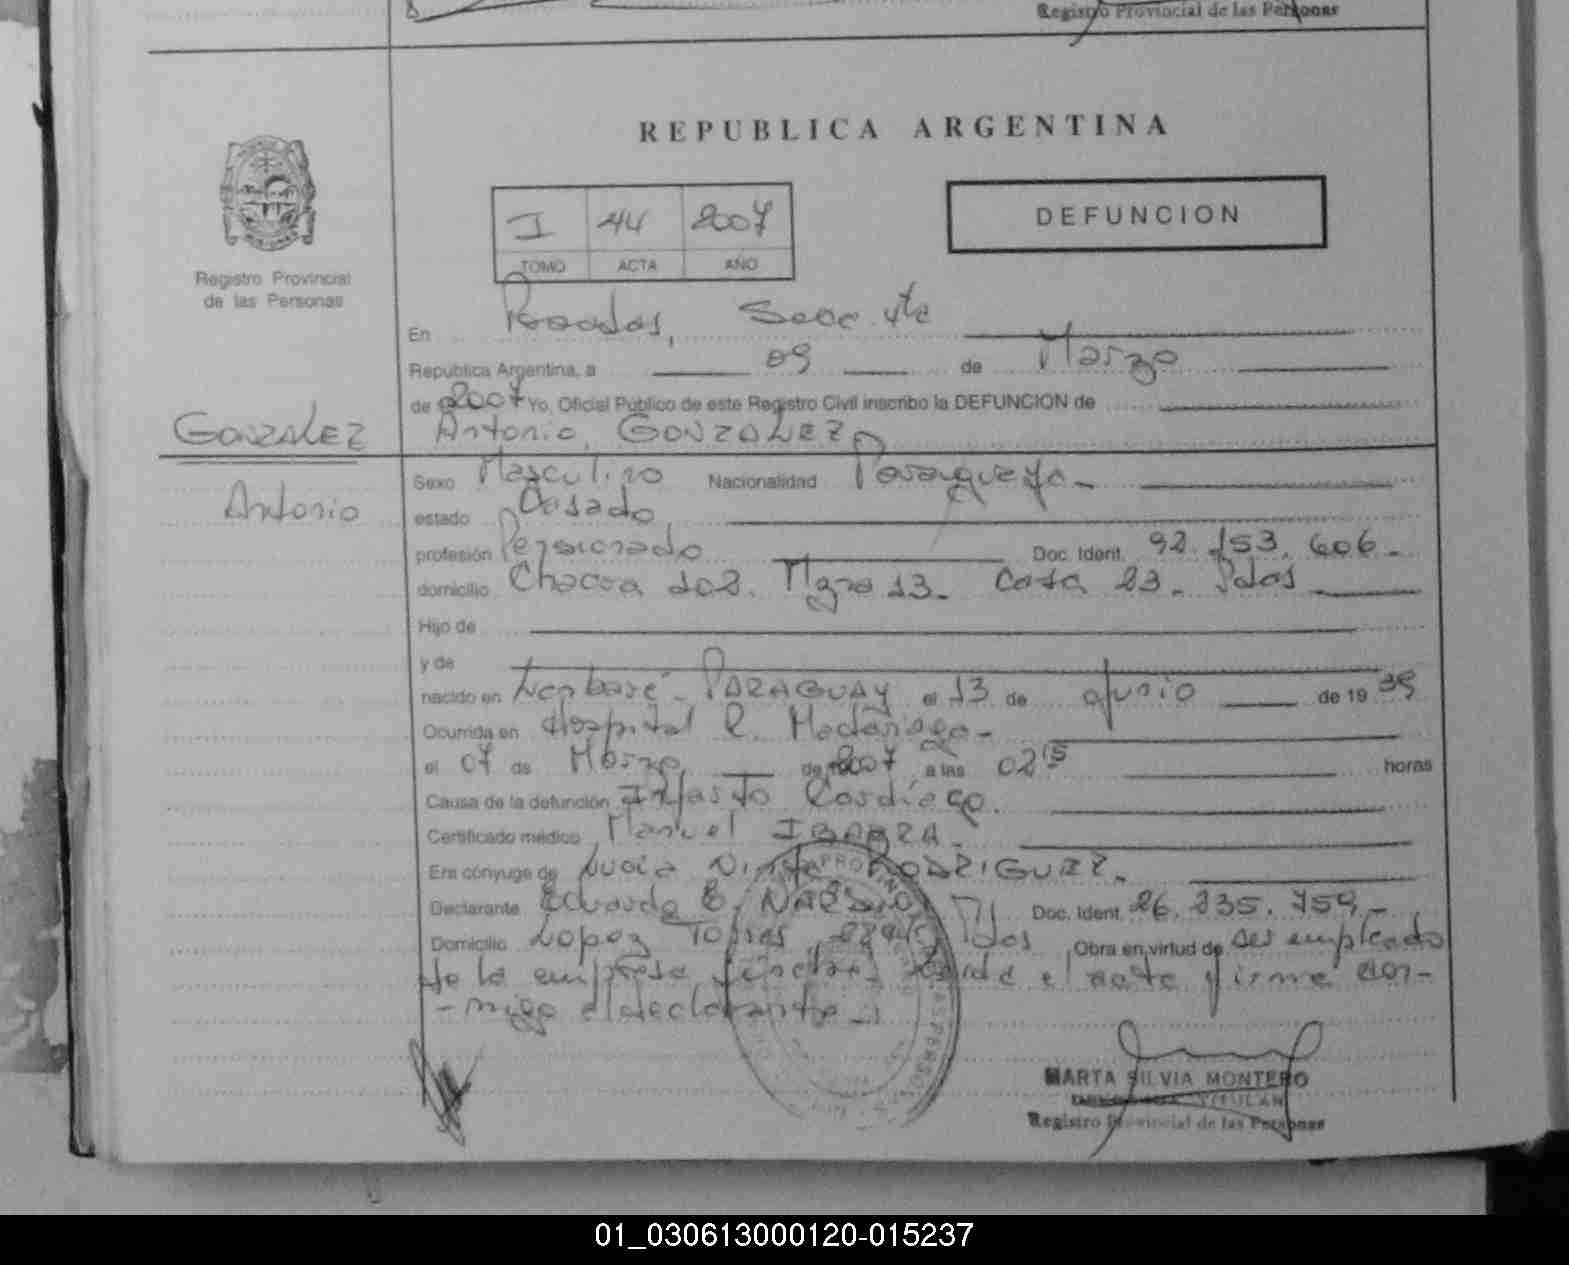 Registro Provincial de las Personas
REPUBLICA ARGENTINA
I 44 2007
TOMO ACTA AÑO
DEFUNCION
Registro Provincial
de las Personas
En Posadas, Secc. 4ta
República Argentina, a 09 de Marzo
de 2007 Yo, Oficial Público de este Registro Civil inscribo la DEFUNCION de
GONZALEZ
Antonio, GONZALEZ
Sexo Masculino Nacionalidad Paraguaya -
Antonio
estado Casado
profesión Pensionado Doc. Ident. 92.153.606 -
domicilio Chacra 102. Mzna 13 - Casa 23 - Pdas
Hijo de
y de
nacido en Lambaré - PARAGUAY el 13 de Junio de 19 39
Ocurrida en Hospital R. Madariaga -
el 07 de Marzo de 2007 a las 02 15 horas
Causa de la defunción Infarto Cardíaco
Certificado médico Manuel IBARRA -
Era cónyuge de RODRIGUEZ -
Declarante Eduardo Doc. Ident. 26.235.759 -
Domicilio Lopez Torres Pdas Obra en virtud de ser empleado
de la empresa el acta firma con-
-migo el declarante -
MARTA SILVIA MONTERO
Registro Provincial de las Personas
01_030613000120-015237